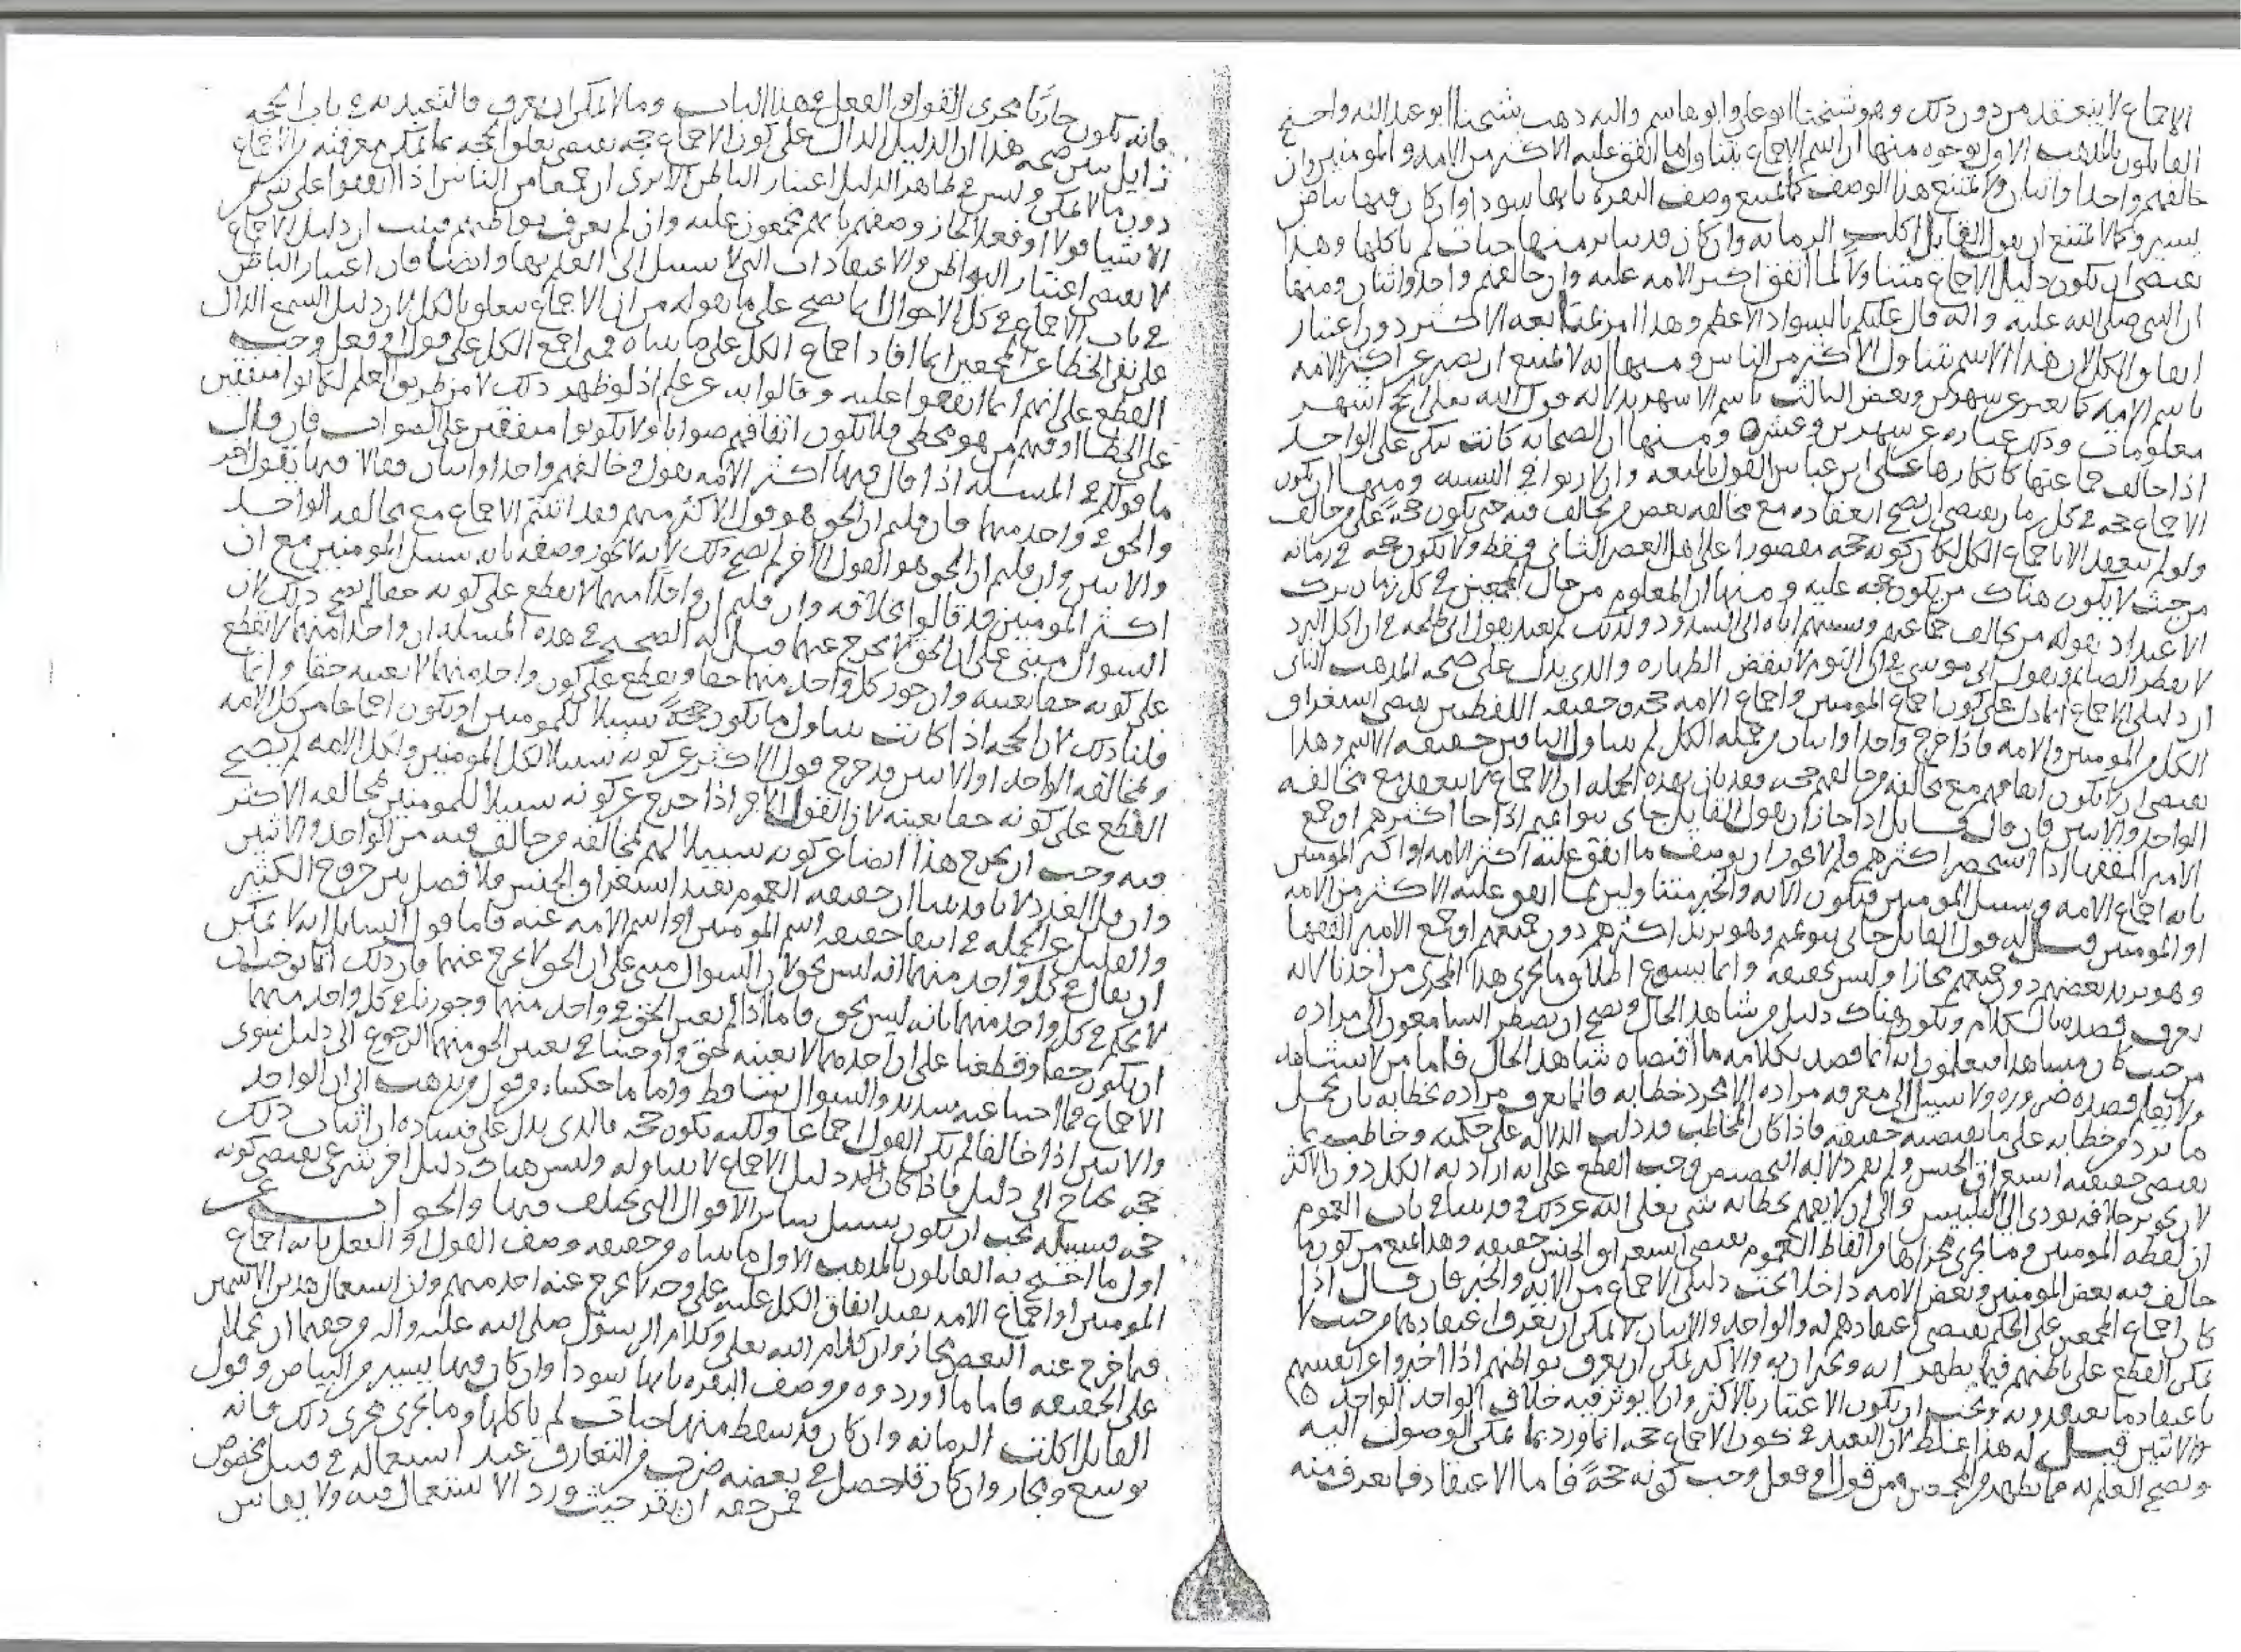 الاجماع لا ينعقد من دون ذلك وهو شيخنا ابو علي وابو هاشم واليه ذهب شيخنا ابو عبد الله واحتج
القايلون بالمذهب الاول بوجوه منها ان اسم الاجماع يتناول ما اتفق عليه الاكثر من الامه والمومنين وان
خالفهم واحد او اثنان ولا يمتنع هذا الوصف كما لا يمتنع وصف البقره بانها سودا وان كان فيها بياض
يسير وكما لا يمتنع ان يقول القايل اكلت الرمانه وان كان قد تناثر منها حبات لم ياكلها وهذا
يقتضي ان يكون دليل الاجماع متناولا لما اتفق اكثر الامه عليه وان خالفهم واحد او اثنان ومنها
ان النبي صلى الله عليه واله قال عليكم بالسواد الاعظم وهذا امر بمتابعه الاكثر دون اعتبار
اتفاق الكل لان هذا الاسم يتناول الاكثر من الناس ومنها انه لا يمتنع ان يعبر عن اكثر الامه
باسم الامه كما يعبر عن شهرين وبعض الثالث باسم الاشهر بدلاله قول الله تعالى الحج اشهر
معلومات وذلك عباره عن شهرين وعشر ومنها ان الصحابه كانت تنكر على الواحد
اذا خالف جماعتها كانكارها على ابن عباس القول بالمتعه وان لا ربوا الا في النسيه ومنها ان كون
الاجماع حجه في كل زمان يقتضي ان يصح انعقاده مع مخالفه بعض من يخالف فيه حتى يكون حجة على من خالف
ولو لم ينعقد الا باجماع الكل لكان كونه حجه مقصورا على اهل العصر الثاني فقط ولا يكون حجه في زمانه
من حيث لا يكون هناك من يكون حجه عليه ومنها ان المعلوم من حال المجمعين في كل زمان ترك
الاعتداد بقول من يخالف جماعتهم ونسبتهم اياه الى الشذوذ ولذلك لم يعتد بقول ابي طلحه في ان اكل البرد
لا يفطر الصايم وبقول ابي موسى في ان النوم لا ينقض الطهاره والذي يدل على صحه المذهب الثاني
ان دليل الاجماع انما دل على كون اجماع المومنين واجماع الامه حجه وحقيقه اللفظين يقتضي استغراق
الكل من المومنين والامه فاذا خرج واحد او اثنان من جمله الكل لم يتناول الباقين حقيقه الاسم وهذا
يقتضي ان لا يكون اتفاقهم مع مخالفه من خالفهم حجه فقد بان بهذه الجمله ان الاجماع لا ينعقد مع مخالفه
الواحد والاثنين فان قال قايل اذا جاز ان يقول القايل جاني بنو تميم اذا جا اكثرهم او جمع
الامير الفقها اذا استحضر اكثرهم فلم لا يجوز ان يوصف ما اتفق عليه اكثر الامه او اكثر المومنين
بانه اجماع الامه وسبيل المومنين فتكون الايه والخبر متناولين لما اتفق عليه الاكثر من الامه
او المومنين قيل له قول القايل جاني بنو تميم وهو يريد اكثرهم دون جميعهم او جمع الامير الفقها
وهو يريد بعضهم دون جميعهم مجازا وليس بحقيقه وانما يسوغ اطلاق ما يجري هذا المجرى من احدنا لانه
يعرف قصده بالكلام ويكون هناك دليل من شاهد الحال ويصح ان يضطر السامعون الى مراده
من حيث كان مشاهدا فيعلمون انه انما قصد بكلامه ما اقتضاه شاهد الحال فاما من لا يشاهد
ولا يعلم قصده ضروره ولا سبيل الى معرفه مراده الا بمجرد خطابه فانما يعرف مراده بخطابه بان يحمل
ما يرد من خطابه على ما يقتضيه حقيقته فاذا كان المخاطب قد دلت الدلاله على حكمته وخاطب بما
يقتضي حقيقته استغراق الجنس ولم تقم دلاله التخصيص وجب القطع على انه اراد به الكل دون الاكثر
لان تجويز خلافه يودي الى التلبيس والى ان لا يفهم بخطابه شي تعالى الله عن ذلك وقد بينا في باب العموم
ان لفظه المومنين وما يجري مجراها من الفاظ العموم يقتضي استغراق الجنس حقيقه وهذا يمنع من كون ما
خالف فيه بعض المومنين وبعض الامه داخلا تحت دليل الاجماع من الايه والخبر فان قال اذا
كان اجماع المجمعين على الحكم يقتضي اعتقادهم له والواحد والاثنان لا يمكن ان يعرف اعتقادهما من حيث لا
يمكن القطع على باطنهم فيما يظهرانه ويخبران به والاكثر يمكن ان يعرف بواطنهم اذا اخبروا عن انفسهم
باعتقاد ما يعتقدونه وجب ان يكون الاعتبار بالاكثر وان لا يوثر فيه خلاف الواحد الواحد
والاثنين قيل له هذا غلط لان التعبد في كون الاجماع حجه انما ورد بما يمكن الوصول اليه
ويصح العلم به فما يظهر من المجمعين من قول او فعل وجب كونه حجة فاما الاعتقاد فما يعرف منه
فانه يكون جاريا مجرى القول والفعل في هذا الباب وما لا يمكن ان يعرف فالتعبد به في باب الحجه
زايل يبين صحه هذا ان الدليل الدال على كون الاجماع حجه يقتضي تعلق الحجه بما يمكن معرفته من الاجماع
دون ما لا يمكن وليس في ظاهر الدليل اعتبار الباطن الا ترى ان جمعا من الناس اذا اتفقوا على شي من
الاشيا قولا او فعلا لجاز وصفهم بانهم مجمعون عليه وان لم يعرف بواطنهم فيثبت ان دليل الاجماع
لا يقتضي اعتبار البواطن والاعتقادات التي لا سبيل الى العلم بها وايضا فان اعتبار الباطن
في باب الاجماع في كل الاحوال انما يصح على ما نقوله من ان الاجماع يتعلق بالكل لان دليل السمع الدال
على نفي الخطا عن المجمعين انما افاد اجماع الكل على ما بيناه فمتى اجمع الكل على قول او فعل وجب
القطع على انهم انما اتفقوا عليه وقالوا به عن علم اذ لو ظهر ذلك لا من طريق العلم لكانوا متفقين
على الخطا او فيهم من هو مخطي فلا يكون اتفاقهم صوابا ولا يكونوا متفقين على الصواب فان قال
ما قولكم في المسيله اذا قال فيها اكثر الامه بقول وخالفهم واحد او اثنان فقالا فيها بقول اخر
والحق في واحد منهما فان قلتم ان الحق هو قول الاكثر منهم فقد اثبتم الاجماع مع مخالفه الواحد
والاثنين وان قلتم ان الحق هو القول الاخر لم يصح ذلك لانه لا يجوز وصفه بانه سبيل المومنين مع ان
اكثر المومنين قد قالوا بخلافه وان قلتم ان واحدا منهما لا نقطع على كونه حقا لم يصح ذلك لان
السوال مبني على ان الحق لا يخرج عنهما قيل له الصحيح في هذه المسيله ان واحدا منهما لا يقطع
على كونه حقا بعينه وان جوز كل واحد منهما حقا ويقطع على كون واحد منهما لا بعينه حقا وانما
قلنا ذلك لان الحجه اذا كانت تتناول ما يكون حجة سبيلا للمومنين او يكون اجماعا من كل الامه
ولمخالفه الواحد او الاثنين قد خرج قول الاكثر عن كونه سبيلا لكل المومنين ولكل الامه لم يصح
القطع على كونه حقا بعينه لان القول الاخر اذا خرج عن كونه سبيلا للمومنين لمخالفه الاكثر
فيه وجب ان يخرج هذا ايضا عن كونه سبيلا لهم لمخالفه من خالف فيه من الواحد والاثنين
وان قل العدد لانا قد بينا ان حقيقه العموم تفيد استغراق الجنس فلا فصل بين خروج الكثير
والقليل عن الجمله في انتفا حقيقه اسم المومنين او اسم الامه عنه فاما قول السايل انه لا يمكن
ان يقال في كل واحد منهما انه ليس بحق لان السوال مبني على ان الحق لا يخرج عنهما فان ذلك انما يوجب ان
لا يحكم في كل واحد منهما بانه ليس بحق فاما اذا لم يعين الحق في واحد منهما وجوزنا في كل واحد منهما
ان يكون حقا وقطعنا على ان احدهما لا بعينه حق واوجبنا في تعيين الحق منهما الرجوع الى دليل سوى
الاجماع فما اجبنا عنه سديد والسوال ساقط واما ما حكيناه من قول من يذهب الى ان الواحد
والاثنين اذا خالفا لم يكن القول اجماعا ولكنه يكون حجه فالذي يدل على فساده ان اثبات ذلك
حجه يحتاج الى دليل فاذا كان دليل الاجماع لا يتناوله وليس هناك دليل اخر شرعي يقتضي كونه
حجه فسبيله يجب ان يكون سبيل ساير الاقوال التي يختلف فيها والجواب عن
اول ما احتج به القايلون بالمذهب الاول ما بيناه من حقيقه وصف القول او الفعل بانه اجماع
المومنين او اجماع الامه يفيد اتفاق الكل عليه على وجه لا يخرج عنه احد منهم وان استعمال هذين الاسمين
فيما خرج عنه البعض مجاز وان كلام الله تعالى وكلام الرسول صلى الله عليه واله من حقهما ان يحملا
على الحقيقه فاما ما اوردوه من وصف البقره بانها سودا وان كان فيها يسير من البياض وقول
القايل اكلت الرمانه وان كان قد سقط منها حبات لم ياكلها وما يجري مجرى ذلك فانه
توسع ومجاز وان كان قد حصل في بعضه ضرب من التعارف عند استعماله في قبيل مخصوص
فمن حقه ان يقر حيث ورد الاستعمال فيه ولا يقاس